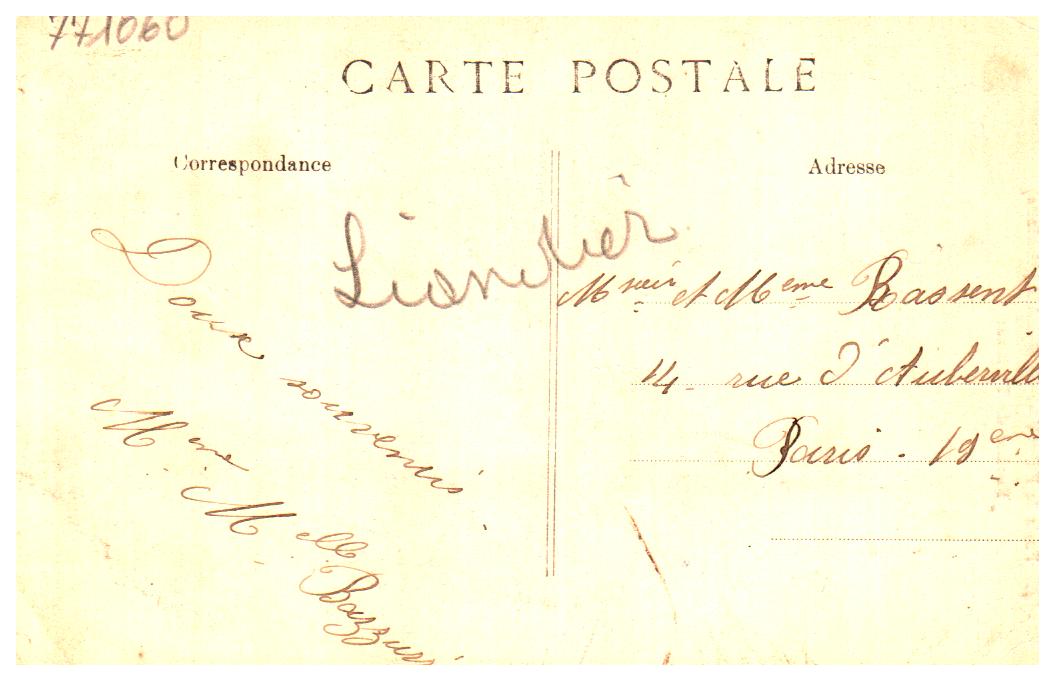 771060
CARTE POSTALE
Correspondance
Adresse
Doux souvenir
Mme Melle
Bazzuri
Msieur et Meme Bassent
14 rue d'Aubervill
Paris - 19eme